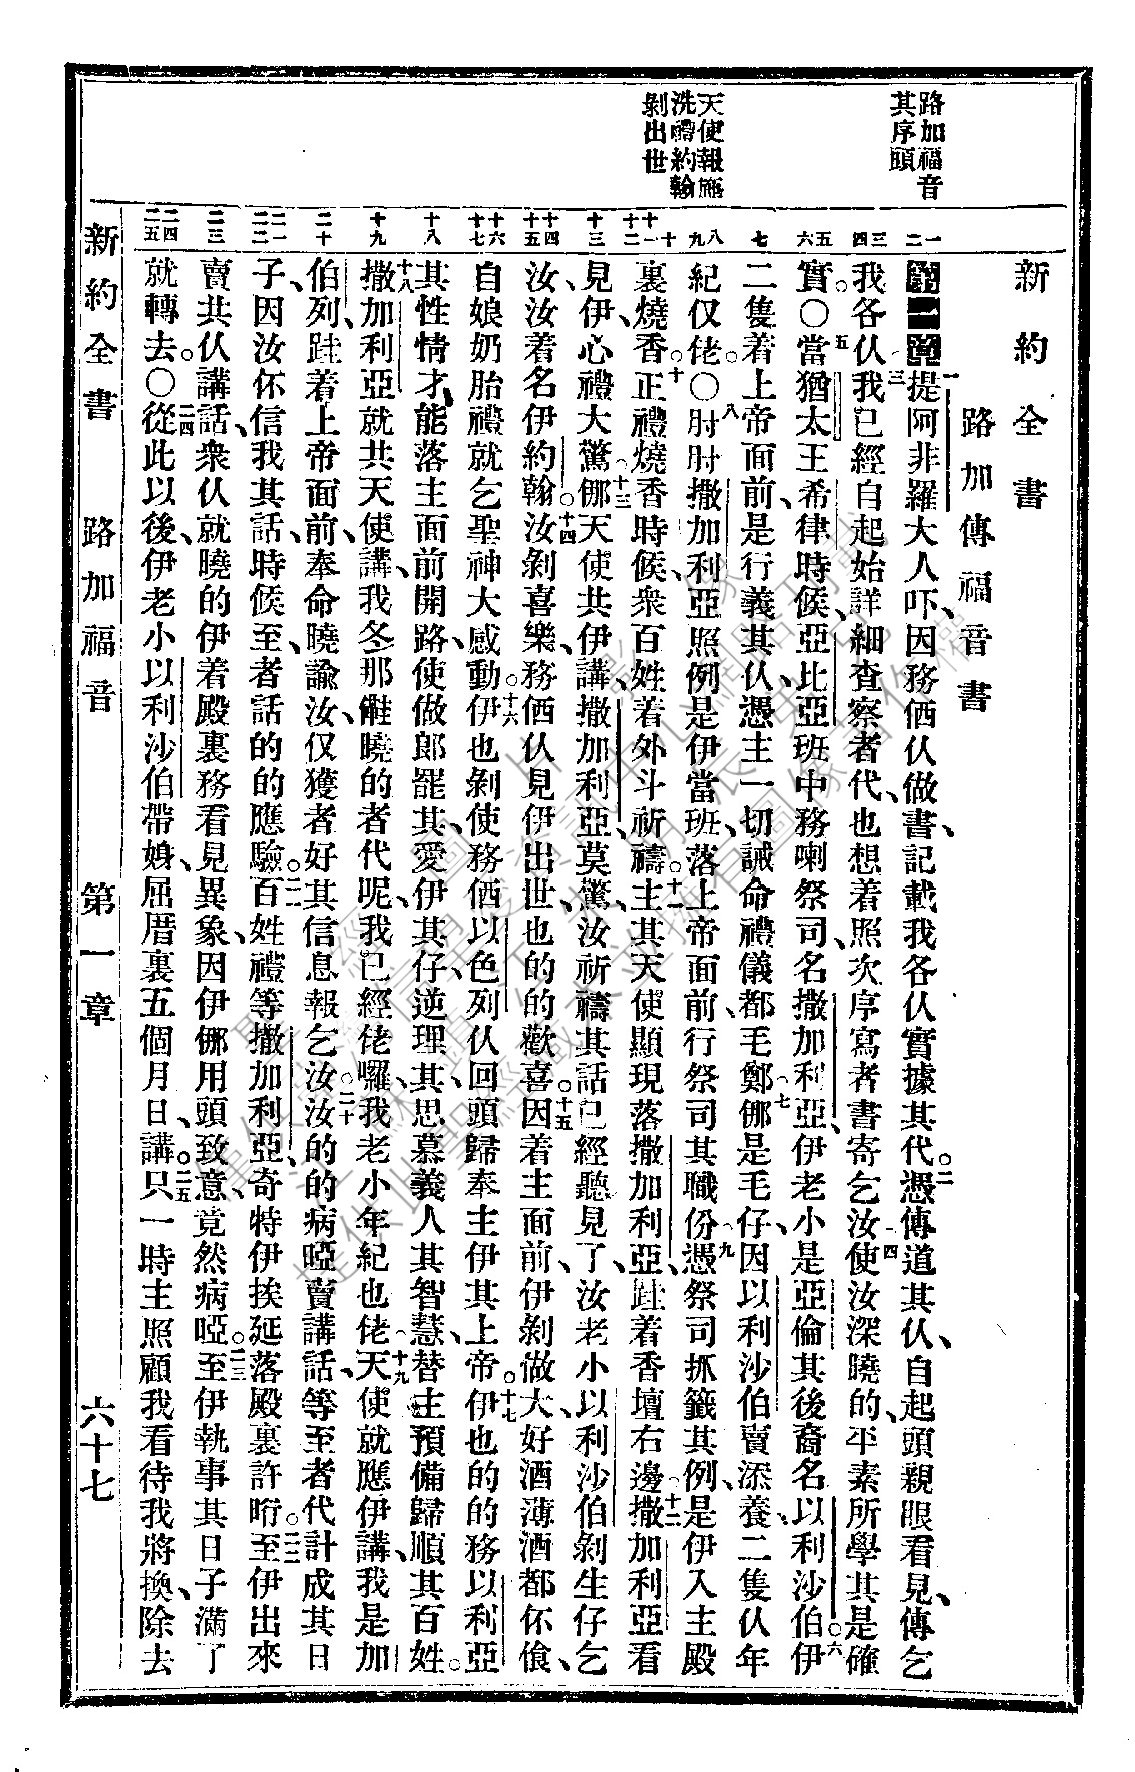 路加福音
其序頭
天使報應
洗禮約翰
剝出世
新約全書
路加傳福音書
第一章 一提阿非羅大人吓、因務価仈做書、記載我各仈實據其代。二憑傳道其仈、自起頭親眼看見、傳乞
我各仈、三我已經自起始詳細查察者代、也想着照次序寫者書寄乞汝、四使汝深曉的、平素所學其是確
實。〇五當猶太王希律時候、亞比亞班中務喇祭司、名撒加利亞、伊老小是亞倫其後裔、名以利沙伯。六伊
二隻着上帝面前、是行義其仈、憑主一切誡命禮儀都毛鄭。七𠲥是毛仔、因以利沙伯賣𣻸養、二隻仈年
紀仅佬。〇八肘肘撒加利亞照例是伊當班、落上帝面前、行祭司其職份、九憑祭司抓籤其例、是伊入主殿
裏燒香。十正禮燒香時候、衆百姓着外斗祈禱。十一主其天使顯現落撒加利亞、跓着香壇右邊。十二撒加利亞看
見伊、心禮大驚。十三𠲥天使共伊講、撒加利亞、莫驚、汝祈禱其話已經聽見了、汝老小以利沙伯剝生仔乞
汝、汝着名伊約翰。十四汝剝喜樂、務価仈見伊出世、也的的歡喜。十五因着主面前、伊剝做大、好酒薄酒都伓倉、
自娘奶胎禮就乞聖神大感動。十六伊也剝使務価以色列仈回頭歸奉主伊其上帝。十七伊也的的務以利亞
其性情才能、落主面前開路、使做郎罷其愛伊其仔、逆理其思慕義人其智慧、替主預備歸順其百姓。
十八撒加利亞就共天使講、我冬那能曉的者代呢、我已經佬囉、我老小年紀也佬。十九天使就應伊講、我是加
伯列、跓着上帝面前、奉命曉諭汝、仅獲者好其信息報乞汝。二十汝的的病啞賣講話、等至者代計成其日
子、因汝伓信我其話、時候至、者話的的應驗。二一百姓禮等撒加利亞、奇特伊挨延落殿裏許晌。二二至伊出來
賣共仈講話、衆仈就曉的伊着殿裏務看見異象、因伊𠲥用頭致意、竟然病啞。二三至伊執事其日子滿了
就轉去。〇二四從此以後、伊老小以利沙伯帶娠、屈厝裏五個月日、講、二五只一時主照顧我、看待我、將換除去
新約全書 路加福音 第一章 六十七